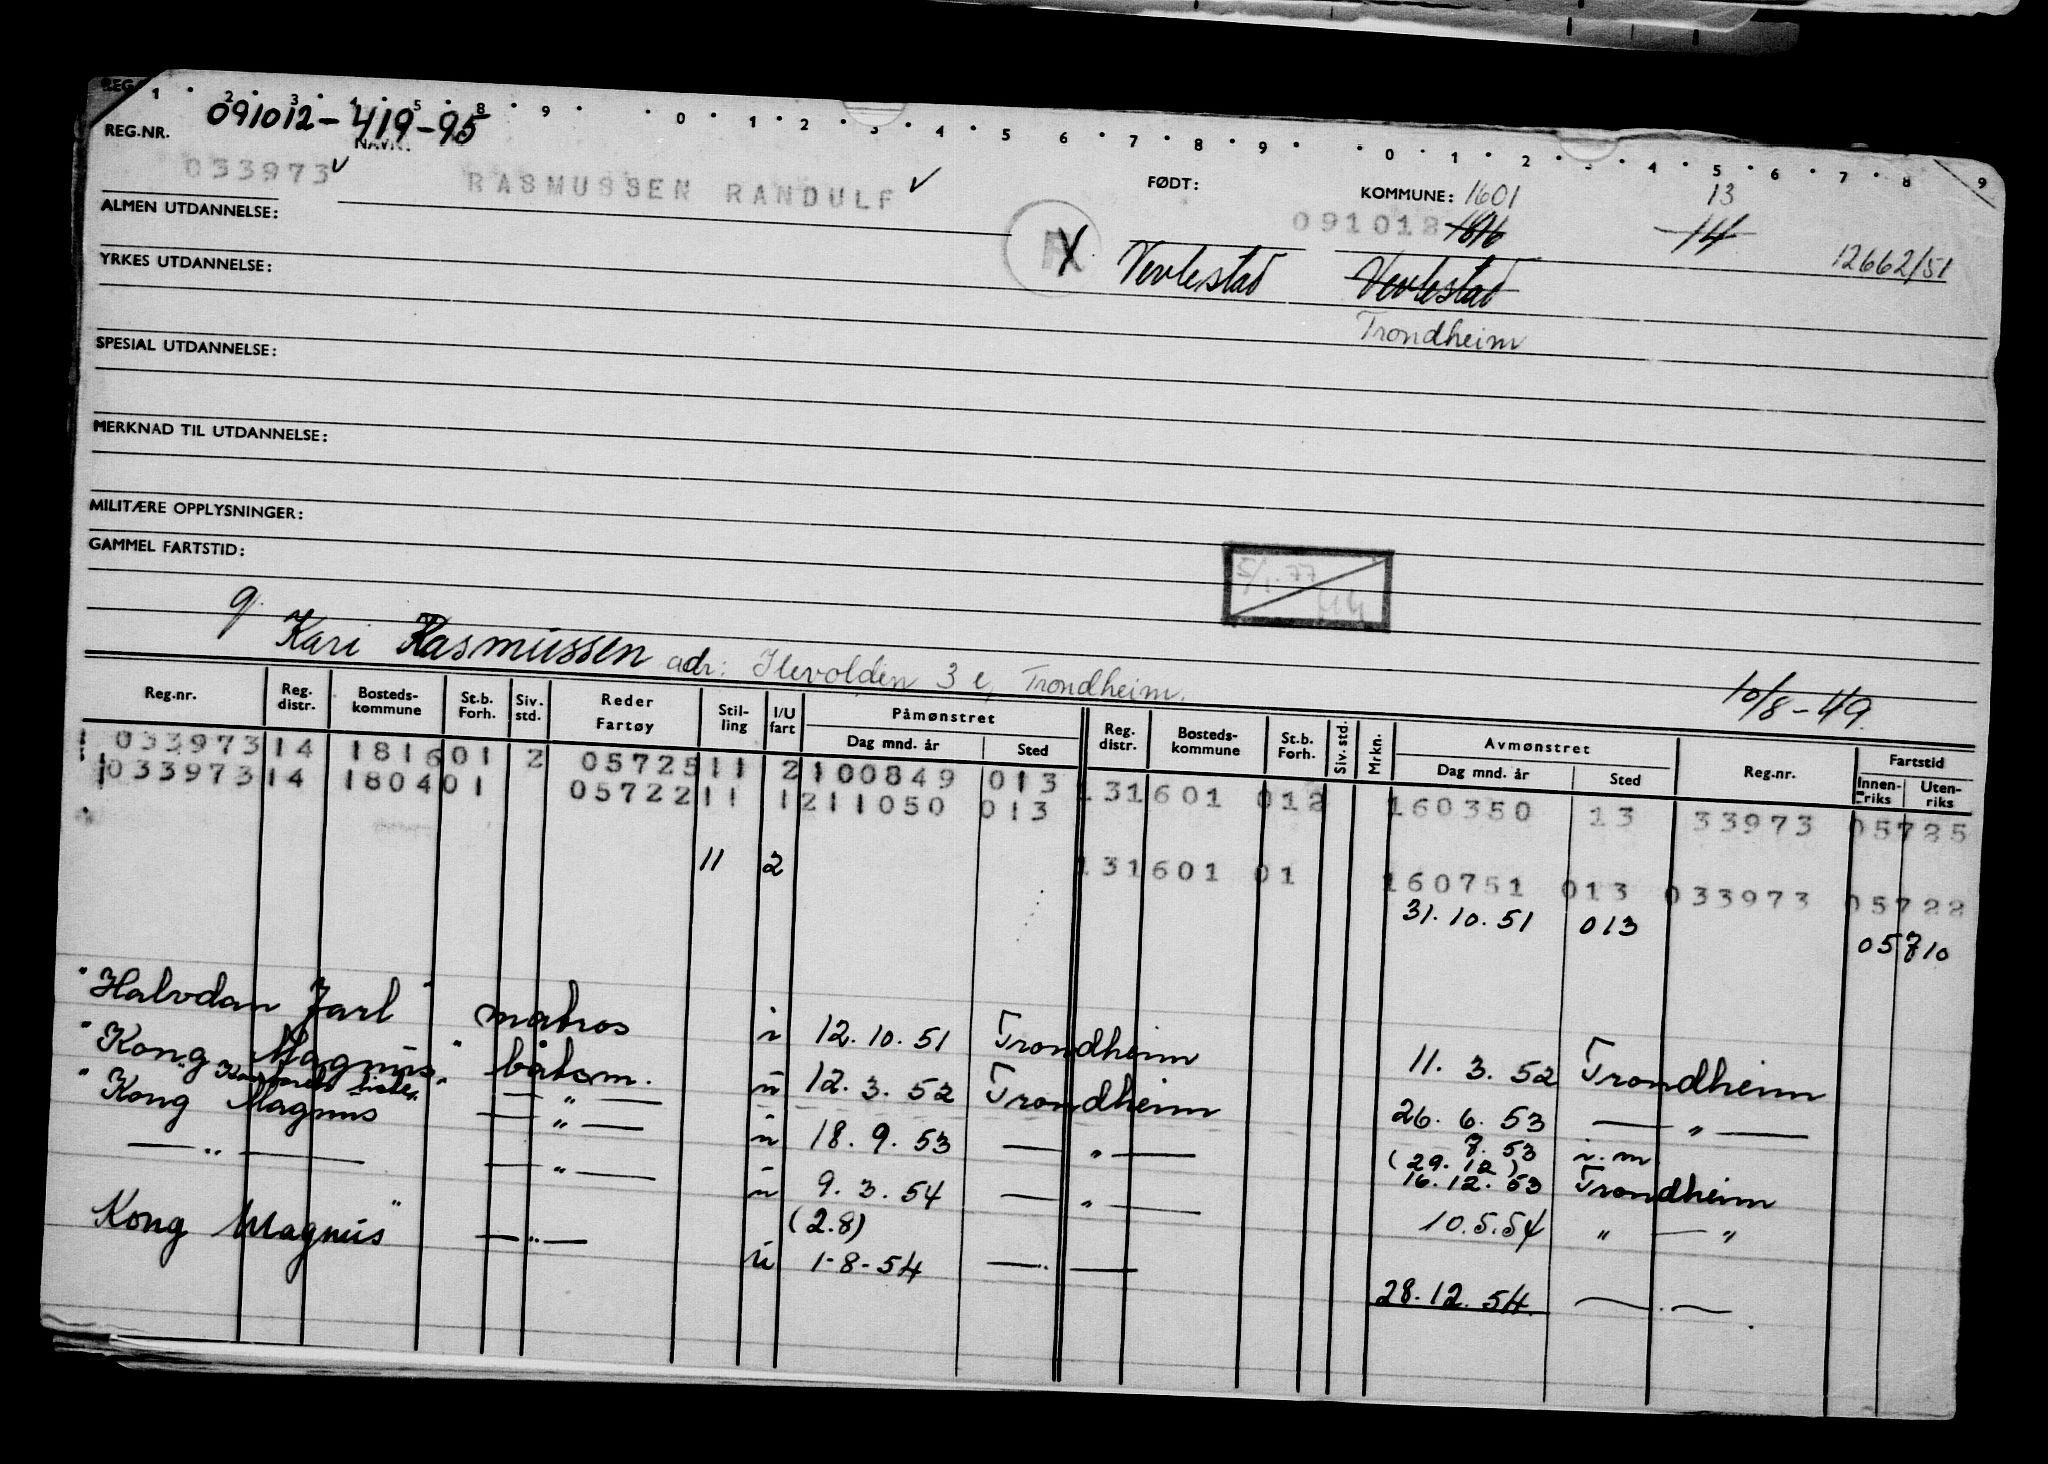 1 2 3 4 5 8 9 0 1 2 3 4 5 6 7 8 9 0 1 2 3 4 5 6 7 8 9
REG.NR. 091012-419-95 NAVN:
033973 RASMUSSEN RANDULF FØDT: KOMMUNE: 1601 13
ALMEN UTDANNELSE: 091012 1816 14
R X Vevlestad Vevlestad 12662/51
YRKES UTDANNELSE:
Trondheim
SPESIAL UTDANNELSE:
MERKNAD TIL UTDANNELSE:
MILITÆRE OPPLYSNINGER:
GAMMEL FARTSTID:
5/1.77
g. Kari Rasmussen adr: Ilevolden 3 e, Trondheim. 10/8-49.
Reg.nr. Reg. distr. Bosteds-kommune St.b. Forh. Siv. std. Reder Fartøy Stil-ling I/U fart Påmønstret Dag mnd. år Sted Reg. distr. Bosteds-kommune St.b. Forh. Siv. std. Mrkn. Avmønstret Dag mnd. år Sted Reg.nr. Fartstid Innen-riks Uten-riks
033973 14 1816 01 2 05725 11 2 100849 013 13 1601 012 160350 13 33973 05725
033973 14 1804 01 05722 11 1 211050 013 13 1601 01 160751 013 033973 05722
11 2 31.10.51 013 05710
"Halvdan Jarl" matros i 12.10.51 Trondheim 11. 3. 52 Trondheim
"Kong Magnus" båtsm. u 12. 3. 52 Trondheim 26. 6. 53 — " —
— " — 7. 53 i.m
"Kong Magnus" — " — u 18. 9. 53 — " — (29. 12) 16. 12. 53 Trondheim
— " — — " — u 9. 3. 54 — " — 10.5.54 " — "
(2.8)
Kong Magnus" — " — u 1-8-54 — " — 28. 12. 54. — " —